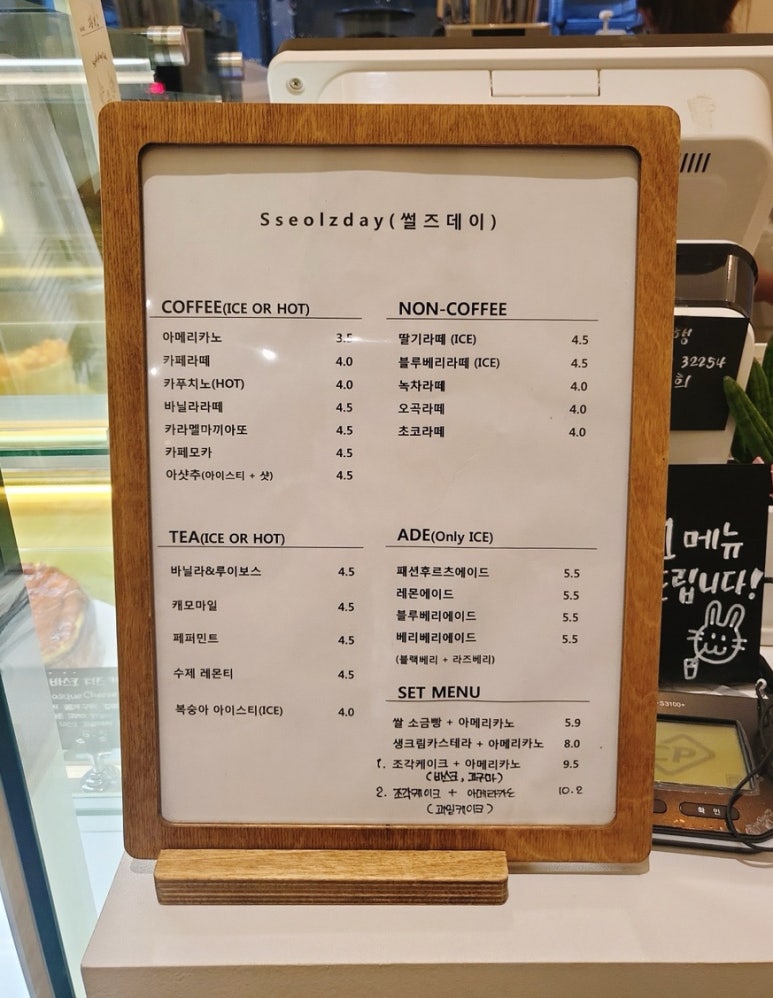 Sseolzday(썰즈데이)
COFFEE(ICE OR HOT)
아메리카노 3.5
카페라떼 4.0
카푸치노(HOT) 4.0
바닐라라떼 4.5
카라멜마끼아또 4.5
카페모카 4.5
아샷추(아이스티 + 샷) 4.5
NON-COFFEE
딸기라떼 (ICE) 4.5
블루베리라떼 (ICE) 4.5
녹차라떼 4.0
오곡라떼 4.0
초코라떼 4.0
TEA(ICE OR HOT)
바닐라&루이보스 4.5
캐모마일 4.5
페퍼민트 4.5
수제 레몬티 4.5
복숭아 아이스티(ICE) 4.0
ADE(Only ICE)
패션후르츠에이드 5.5
레몬에이드 5.5
블루베리에이드 5.5
베리베리에이드 5.5
(블랙베리 + 라즈베리)
SET MENU
쌀 소금빵 + 아메리카노 5.9
생크림카스테라 + 아메리카노 8.0
1. 조각케이크 + 아메리카노 9.5
(바스크, 고구마)
2. 조각케이크 + 아메리카노 10.2
(과일케이크)
32254
희
메뉴
드립니다!
S3100+
CP
확인